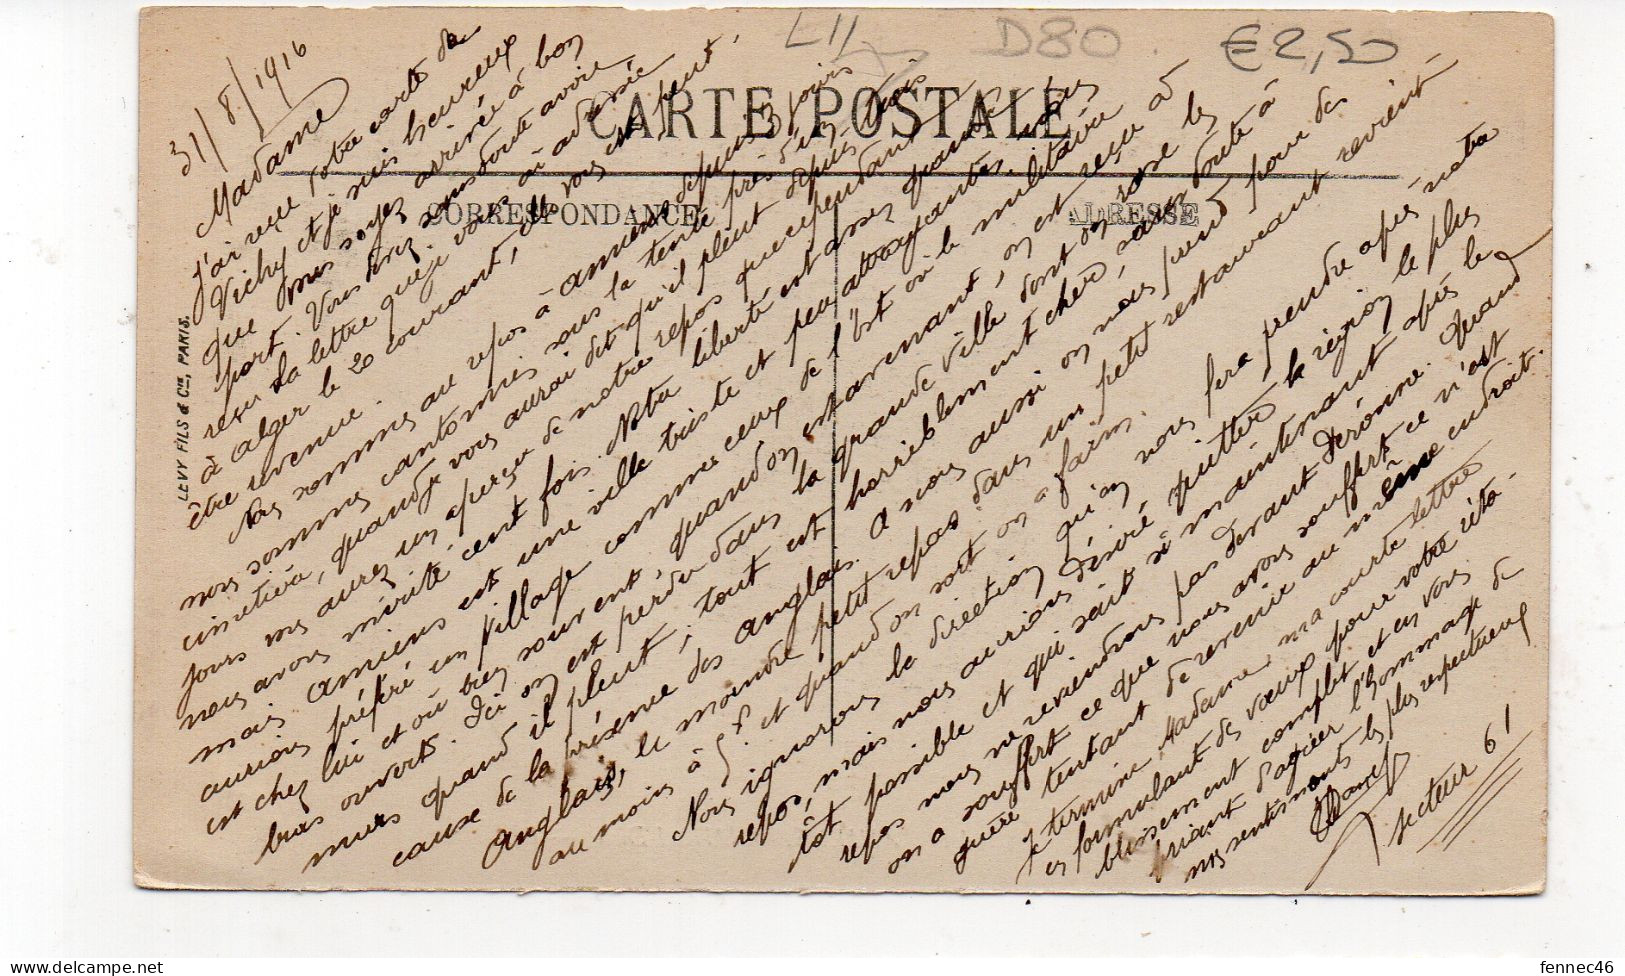 LII
D80
€2,50
CARTE POSTALE
CORRESPONDANCE
ADRESSE
LEVY FILS & Cie, PARIS.
31/8/1916
Madame
J'ai reçu votre carte de
Vichy et je suis heureux
que vous soyez arrivée à bon
port. Vous avez sans doute
reçu la lettre que je vous ai adressée
à Alger le 20 courant, elle vous est peut
être revenue.
Nous sommes au repos à Amiens depuis 3 jours
nous sommes cantonnés sous la tente près d'un
cimetière, quand je vous aurai dit qu'il pleut depuis trois
jours vous aurez un aperçu de notre repos que cependant nous
avons mérité cent fois. Notre liberté est assez grande
mais Amiens est une ville triste et peu attrayante. Nous
aurions préféré un village comme ceux de l'Est où le militaire
est chez lui et où bien souvent, quand on est arrivant, on est reçu à
bras ouverts. Ici on est perdu dans la grande ville dont on rase les
murs quand il pleut ; tout est horriblement cher, sans doute à
cause de la présence des anglais. A nous aussi on nous prend pour des
Anglais, le moindre petit repas dans un petit restaurant revient
au moins à 5f et quand on sort on a faim.
Nous ignorons la direction qu'on nous fera prendre après notre
repos, mais nous aurions désiré quitter la région le plus
tôt possible et qui sait si maintenant après le
repos nous ne reviendrons pas devant Péronne. Quand
on a souffert ce que nous avons souffert ce n'est
guère tentant de revenir au même endroit.
Je termine, Madame, ma courte lettre
en formulant des vœux pour votre
blissement complet et en vous
priant d'agréer l'hommage de
mes sentiments les plus respectueux
Secteur 61
fennec46